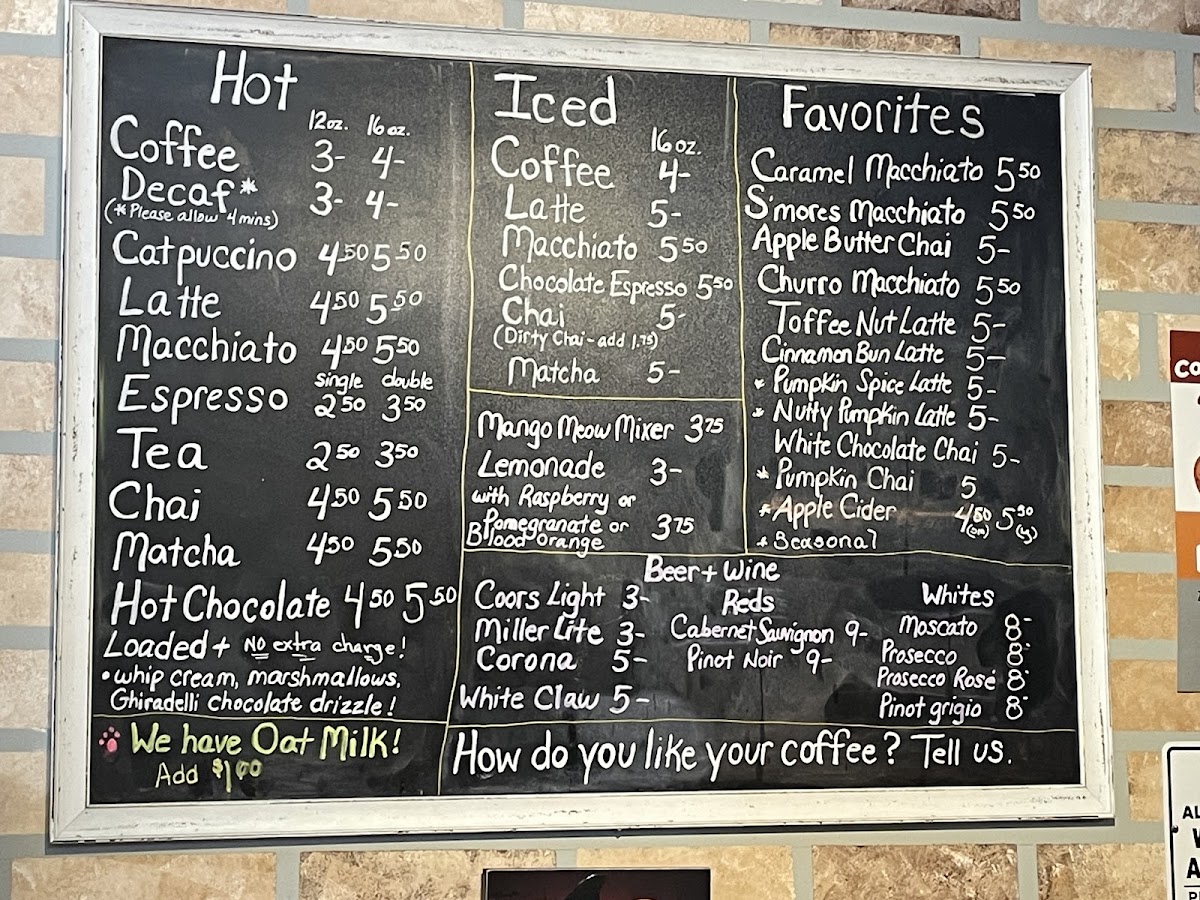 Hot
12oz. 16oz.
Coffee 3- 4-
Decaf* 3- 4-
(*Please allow 4mins)
Catpuccino 4.50 5.50
Latte 4.50 5.50
Macchiato 4.50 5.50
single double
Espresso 2.50 3.50
Tea 2.50 3.50
Chai 4.50 5.50
Matcha 4.50 5.50
Hot Chocolate 4.50 5.50
Loaded + NO extra charge!
•whip cream, marshmallows,
Ghiradelli chocolate drizzle!
We have Oat Milk!
Add $1.00
Iced
16oz.
Coffee 4-
Latte 5-
Macchiato 5.50
Chocolate Espresso 5.50
Chai 5-
(Dirty Chai - add 1.75)
Matcha 5-
Mango Meow Mixer 3.75
Lemonade 3-
with Raspberry or
Pomegranate or 3.75
Blood orange
Favorites
Caramel Macchiato 5.50
S'mores Macchiato 5.50
Apple Butter Chai 5-
Churro Macchiato 5.50
Toffee Nut Latte 5-
Cinnamon Bun Latte 5-
* Pumpkin Spice Latte 5-
* Nutty Pumpkin Latte 5-
White Chocolate Chai 5-
* Pumpkin Chai 5
* Apple Cider 4.50 5.50
* Seasonal
Beer + Wine
Coors Light 3-
Miller Lite 3-
Corona 5-
White Claw 5-
Reds
Cabernet Sauvignon 9-
Pinot Noir 9-
Whites
Moscato 8-
Prosecco 8-
Prosecco Rosé 8-
Pinot grigio 8-
How do you like your coffee? Tell us.